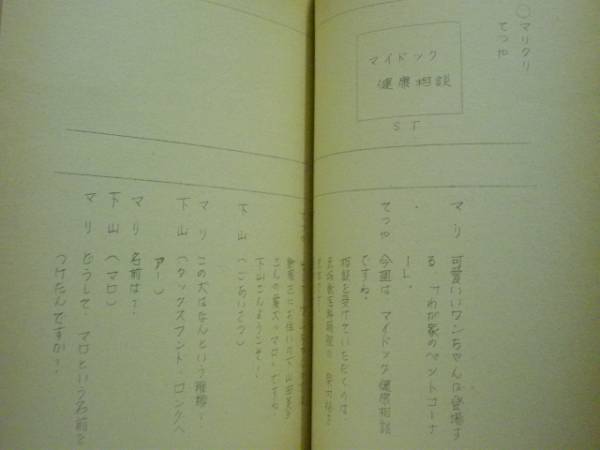 ○マリクリ
てつや
マイドック
健康相談
ST
マリ 可愛いいワンちゃんが登場す
る、「わが家のペットコーナ
ー」。
てつや 今週は マイドック健康相談
ですね。
相談を受けていただくのは、
下山さんようこそ!
下山 (ごあいさつ)
マリ この犬はなんという種類?
下山 (ダックスフント・ロングヘ
アー)
マリ 名前は?
下山 (マロ)
マリ どうして マロという名前を
つけたんですか?